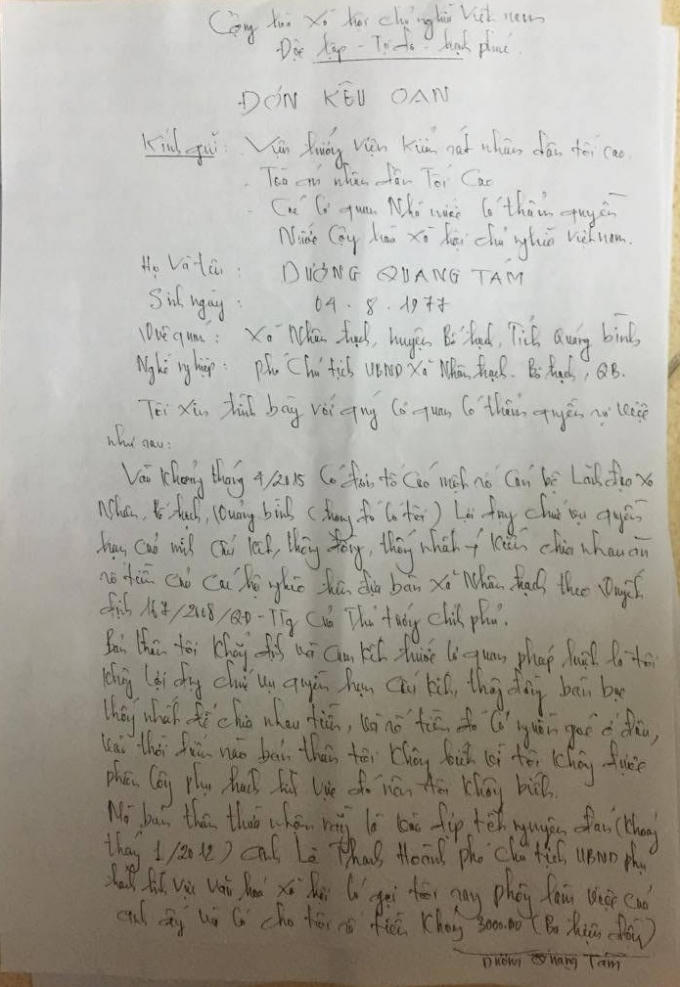 Cộng hoà Xã hội chủ nghĩa Việt nam
Độc lập - Tự do - hạnh phúc
ĐƠN KÊU OAN
Kính gửi: Viện trưởng Viện kiểm sát nhân dân tối cao.
- Toà án nhân dân Tối Cao
- Các Cơ quan Nhà nước Có thẩm quyền
Nước Cộng hoà xã hội chủ nghĩa Việt nam.
Họ và tên : DƯƠNG QUANG TÁM
Sinh ngày : 04 . 8 . 1977
Quê quán : Xã Nhân trạch, huyện Bố trạch, Tỉnh Quảng bình
Nghề nghiệp : phó Chủ tịch UBND Xã Nhân trạch - Bố trạch, QB.
Tôi xin trình bày với quý Cơ quan Có thẩm quyền sự việc
như sau:
Vào khoảng tháng 4/2015 Có đơn tố Cáo một số Cán bộ Lãnh đạo xã
Nhân, Bố trạch, Quảng bình (trong đó Có tôi) Lợi dụng chức vụ quyền
hạn của mình Cấu kết, thông đồng, thống nhất ý kiến chia nhau ăn
số tiền của Các hộ nghèo trên địa bàn Xã Nhân trạch theo Quyết
định 167/2008/QĐ-TTg của Thủ tướng chính phủ.
Bản thân tôi khẳng định và Cam kết trước Cơ quan pháp luật là tôi
không lợi dụng chức vụ quyền hạn Cấu kết, thông đồng bàn bạc
thống nhất để chia nhau tiền, và số tiền đó Có nguồn gốc ở đâu,
vào thời điểm nào bản thân tôi không biết vì tôi không được
phân Công phụ trách lĩnh vực đó nên tôi không biết.
Mà bản thân thừa nhận rằng là vào dịp tết nguyên đán (khoảng
tháng 1/2012) anh Lê Thanh Hoành phó chủ tịch UBND phụ
trách lĩnh vực Văn hoá xã hội Có gọi tôi sang phòng làm việc của
anh ấy và Có cho tôi số tiền khoảng 3000.00 (Ba triệu đồng)
Dương Quang Tám